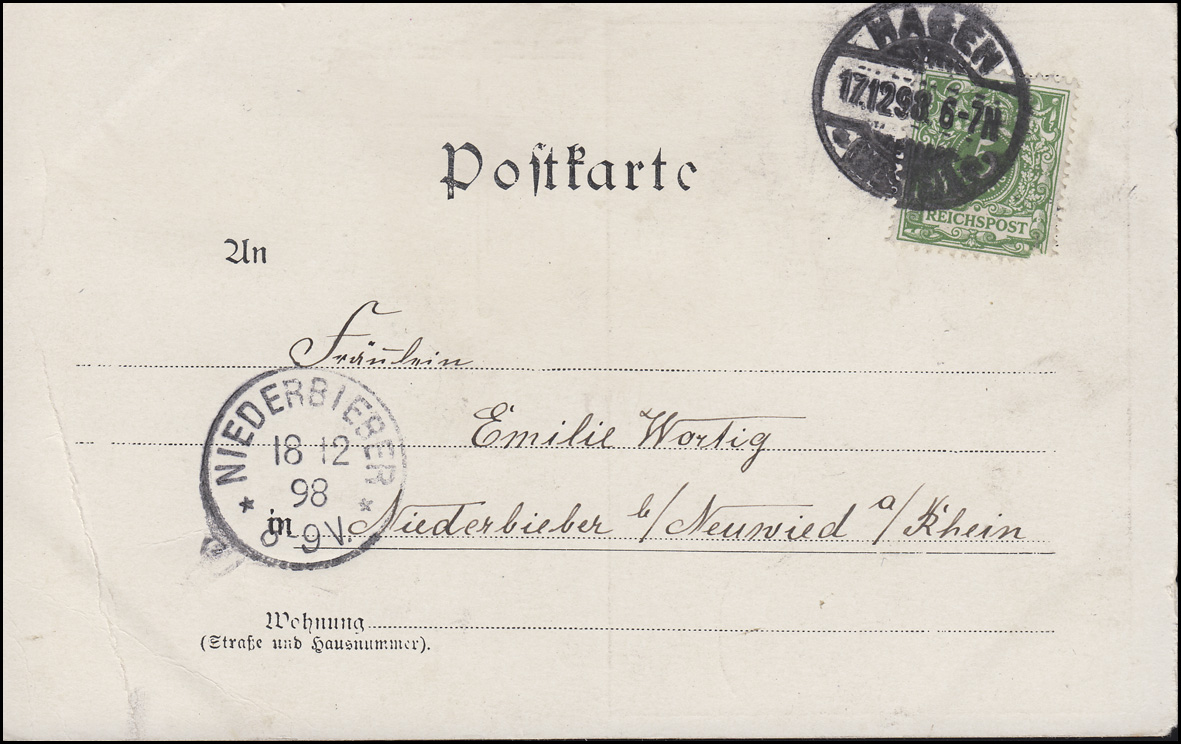 HAGEN
17.12.98. 6-7N
REICHSPOST
Postkarte
An
Fräulein
Emilie Wortig
NIEDERBIEBER
18 12
98
8-9V.
in Niederbieber b/Neuwied a/Rhein
Wohnung
(Straße und Hausnummer).